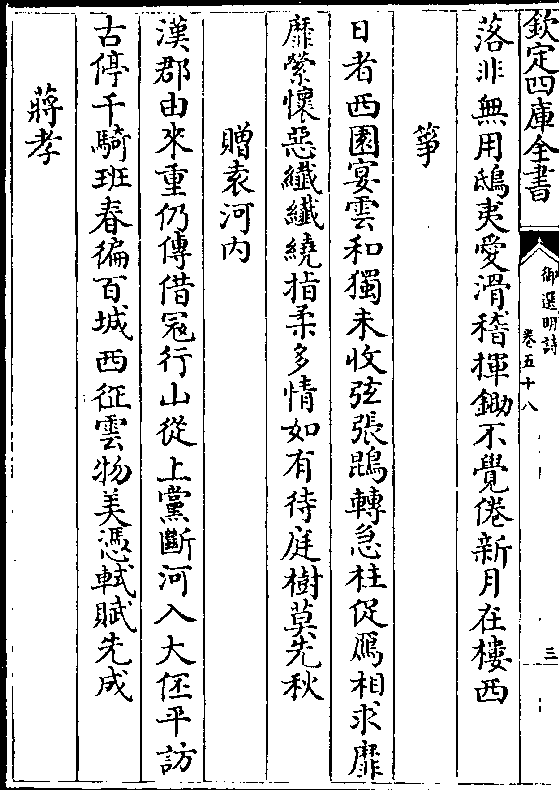 欽定四庫全書
御選明詩
卷五十八
三
落非無用鴟夷愛滑稽揮鋤不覺倦新月在樓西
箏
日者西園宴雲和獨未收弦張鵾轉急柱促鴈相求靡
靡縈懷惡纖纖繞指柔多情如有待庭樹莫先秋
贈袁河内
漢郡由來重仍傳借冦行山從上黨斷河入大伾平訪
古停千騎班春徧百城西征雲物美憑軾賦先成
蔣孝